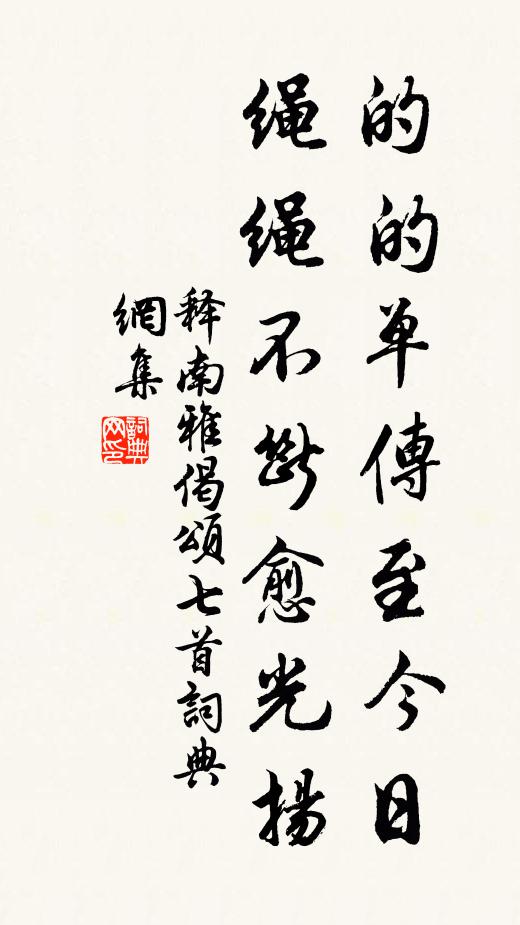 的的单傳至今日
绳绳不斷愈光揚
释南雅偈頌七首詞典
網集
詞典网印